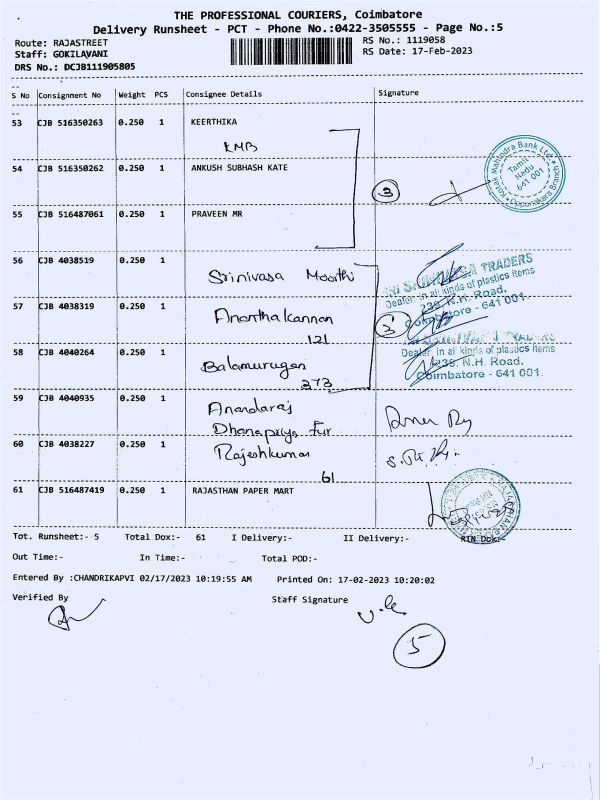 THE PROFESSIONAL COURIERS, Coimbatore
Delivery Runsheet - PCT - Phone No.:0422-3505555 - Page No.:5
Route: RAJASTREET
RS No.: 1119058
Staff: GOKILAVANI
RS Date: 17-Feb-2023
DRS No.: DCJB111905805
S No Consignment No Weight PCS Consignee Details Signature
53 CJB 516350263 0.250 1 KEERTHIKA
KMB
54 CJB 516350262 0.250 1 ANKUSH SUBHASH KATE
3
Kotak Mahindra Bank Ltd.
Tamil
Nadu
641 001
Oppanakara Branch
55 CJB 516487061 0.250 1 PRAVEEN MR
56 CJB 4038519 0.250 1 Srinivasa Moorthi
TRADERS
Dealer in all kinds of plastics items
239, N.H. Road,
Coimbatore - 641 001.
57 CJB 4038319 0.250 1 Ananthakannan
121
3
TRADERS
58 CJB 4040264 0.250 1 Balamurugan
373
Dealer in all kinds of plastics items
239, N.H. Road,
Coimbatore - 641 001.
59 CJB 4040935 0.250 1 Anandaraj
Dhanapriya Fur
60 CJB 4038227 0.250 1 Rajeshkumar
61
61 CJB 516487419 0.250 1 RAJASTHAN PAPER MART
Tot. Runsheet:- 5 Total Dox:- 61 I Delivery:- II Delivery:- RTN Dox:-
Out Time:- In Time:- Total POD:-
Entered By :CHANDRIKAPVI 02/17/2023 10:19:55 AM Printed On: 17-02-2023 10:20:02
Verified By Staff Signature
5